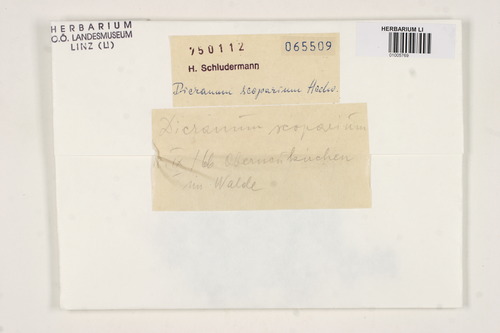 HERBARIUM
O.Ö. LANDESMUSEUM
LINZ (LI)
HERBARIUM LI
01005769
750112 065509
H. Schludermann
Dicranum scoparium Hedw.
Dicranum scoparium
/66
im Walde